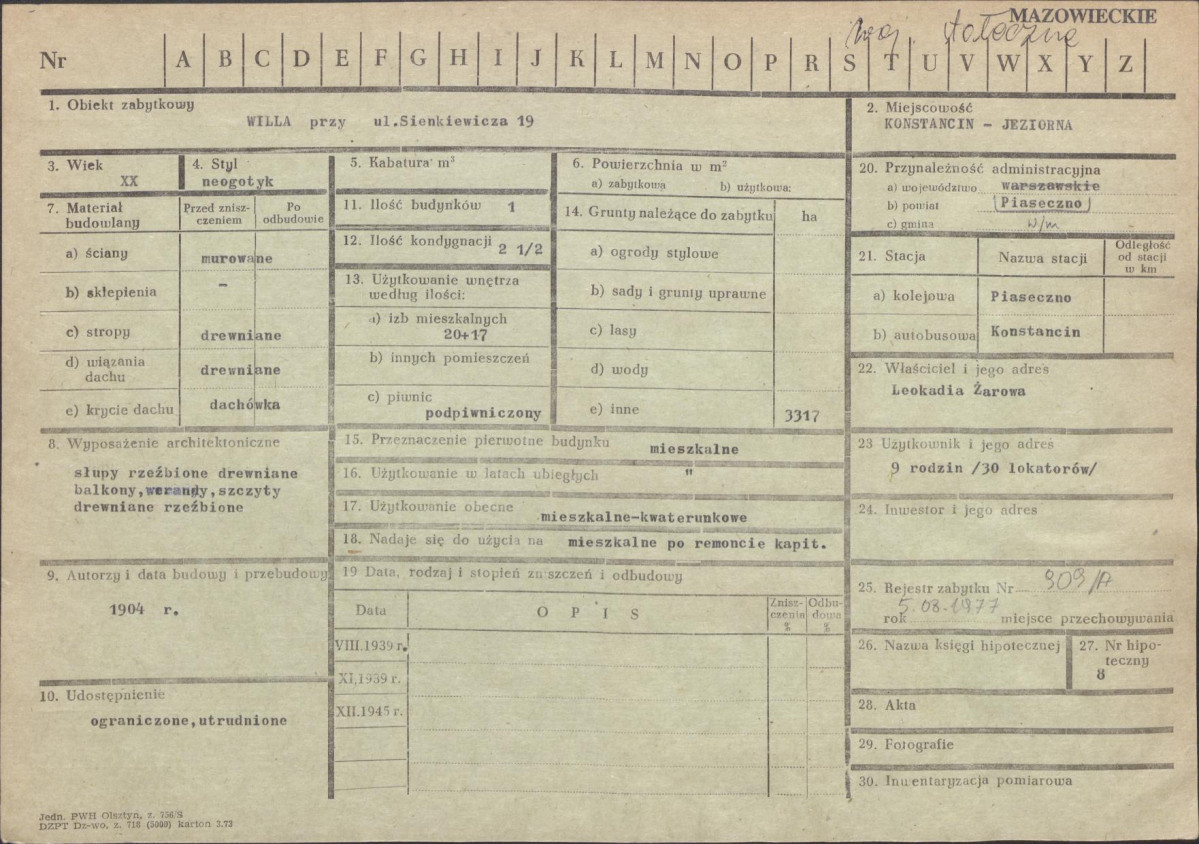 MAZOWIECKIE
woj. stołeczne
Nr A B C D E F G H I J K L M N O P R S T U V W X Y Z
1. Obiekt zabytkowy
WILLA przy ul.Sienkiewicza 19
2. Miejscowość
KONSTANCIN - JEZIORNA
3. Wiek
XX
4. Styl
neogotyk
5. Kabatura m³
6. Powierzchnia w m²
a) zabytkowa b) użytkowa:
7. Materiał
budowlany
Przed znisz-
czeniem
Po
odbudowie
a) ściany murowane
b) sklepienia -
c) stropy drewniane
d) wiązania
dachu drewniane
e) krycie dachu dachówka
11. Ilość budynków 1
12. Ilość kondygnacji
2 1/2
13. Użytkowanie wnętrza
według ilości:
a) izb mieszkalnych
20+17
b) innych pomieszczeń
c) piwnic
podpiwniczony
14. Grunty należące do zabytku ha
a) ogrody stylowe
b) sady i grunty uprawne
c) lasy
d) wody
e) inne 3317
20. Przynależność administracyjna
a) województwo warszawskie
b) powiat Piaseczno
c) gmina w/m
21. Stacja Nazwa stacji
Odległość
od stacji
w km
a) kolejowa Piaseczno
b) autobusowa Konstancin
22. Właściciel i jego adres
Leokadia Żarowa
8. Wyposażenie architektoniczne
słupy rzeźbione drewniane
balkony,werandy,szczyty
drewniane rzeźbione
15. Przeznaczenie pierwotne budynku mieszkalne
16. Użytkowanie w latach ubiegłych "
17. Użytkowanie obecne
mieszkalne-kwaterunkowe
18. Nadaje się do użycia na mieszkalne po remoncie kapit.
23 Użytkownik i jego adres
9 rodzin /30 lokatorów/
24. Inwestor i jego adres
9. Autorzy i data budowy i przebudowy
1904 r.
19 Data, rodzaj i stopień zniszczeń i odbudowy
Data OPIS
Znisz-
czenia
%
Odbu-
dowa
%
VIII.1939 r.
XI.1939 r.
XII.1945 r.
10. Udostępnienie
ograniczone,utrudnione
25. Rejestr zabytku Nr 909/A
5.08.1977
rok miejsce przechowywania
26. Nazwa księgi hipotecznej
27. Nr hipo-
teczny
8
28. Akta
29. Fotografie
30. Inwentaryzacja pomiarowa
Jedn. PWH Olsztyn, z. 736/S
DZPT Dz-wo, z. 718 (5000) karton 3.73